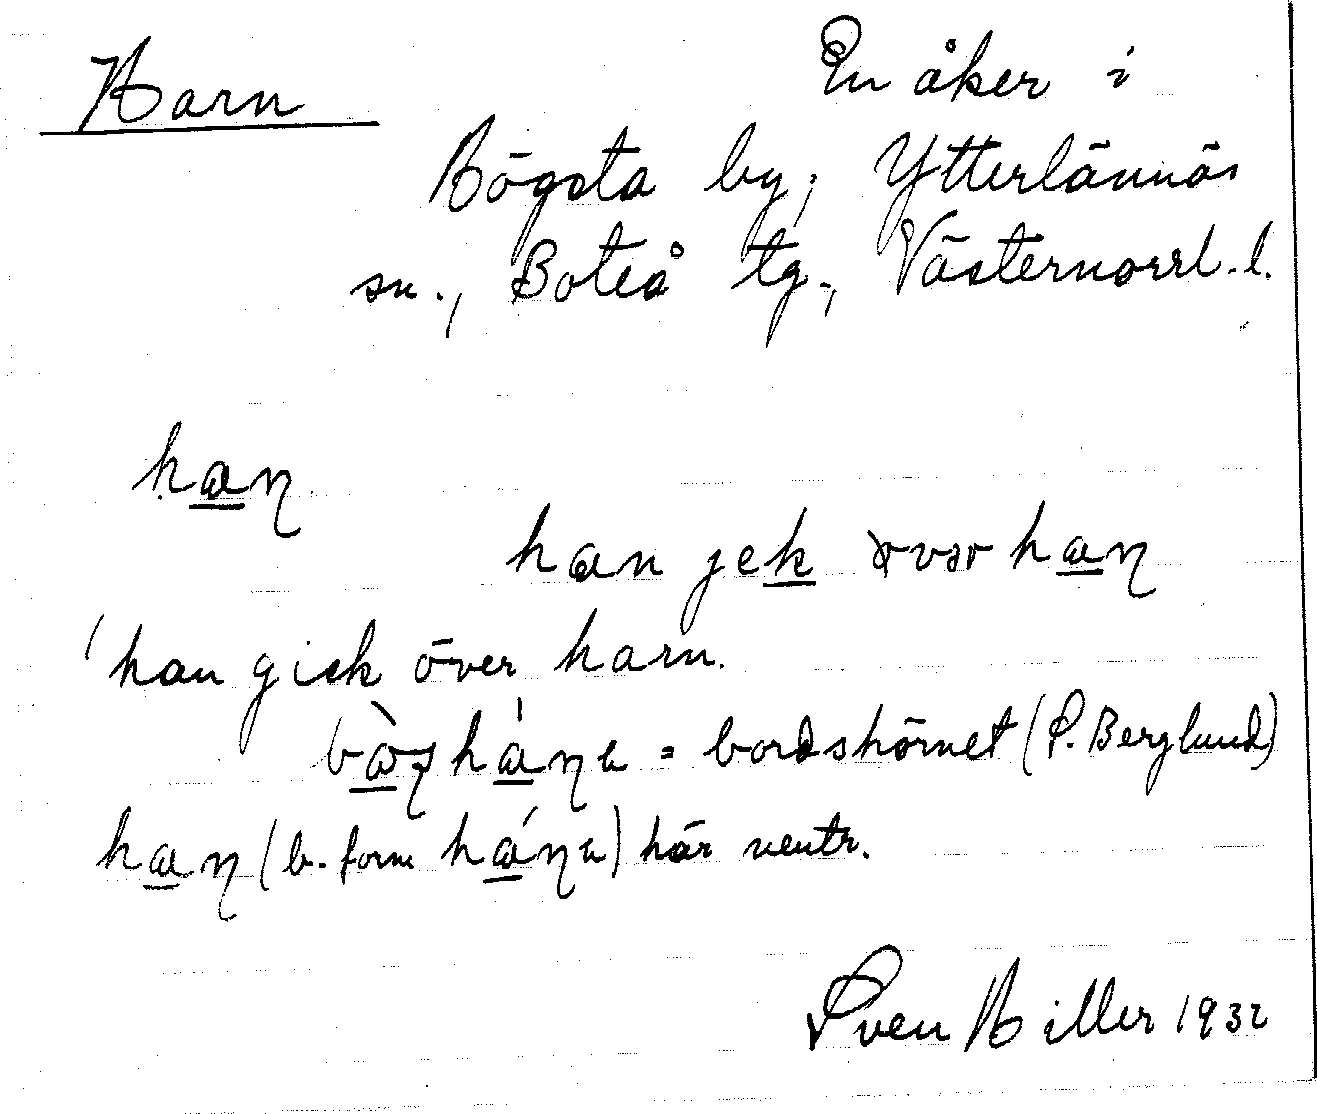 Harn
En åker i
Högsta by, Ytterlännäs
sn., Boteå tg., Västernorrl. l.
han̡
han jek øvər han̡
'han gick över harn.
hán̡a = bordshörnet (P. Berglund)
han̡ (b. form hán̡a) här neutr.
Sven Hiller 1932